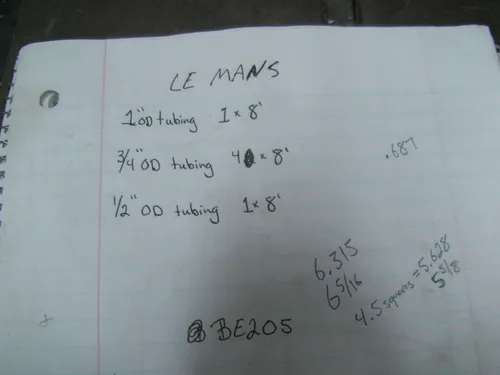 LE MANS
1" OD tubing 1 x 8'
3/4" OD tubing 4 x 8'
.687
1/2" OD tubing 1 x 8'
6.315
6 5/16
4.5 squares = 5.628
5 5/8
BE205